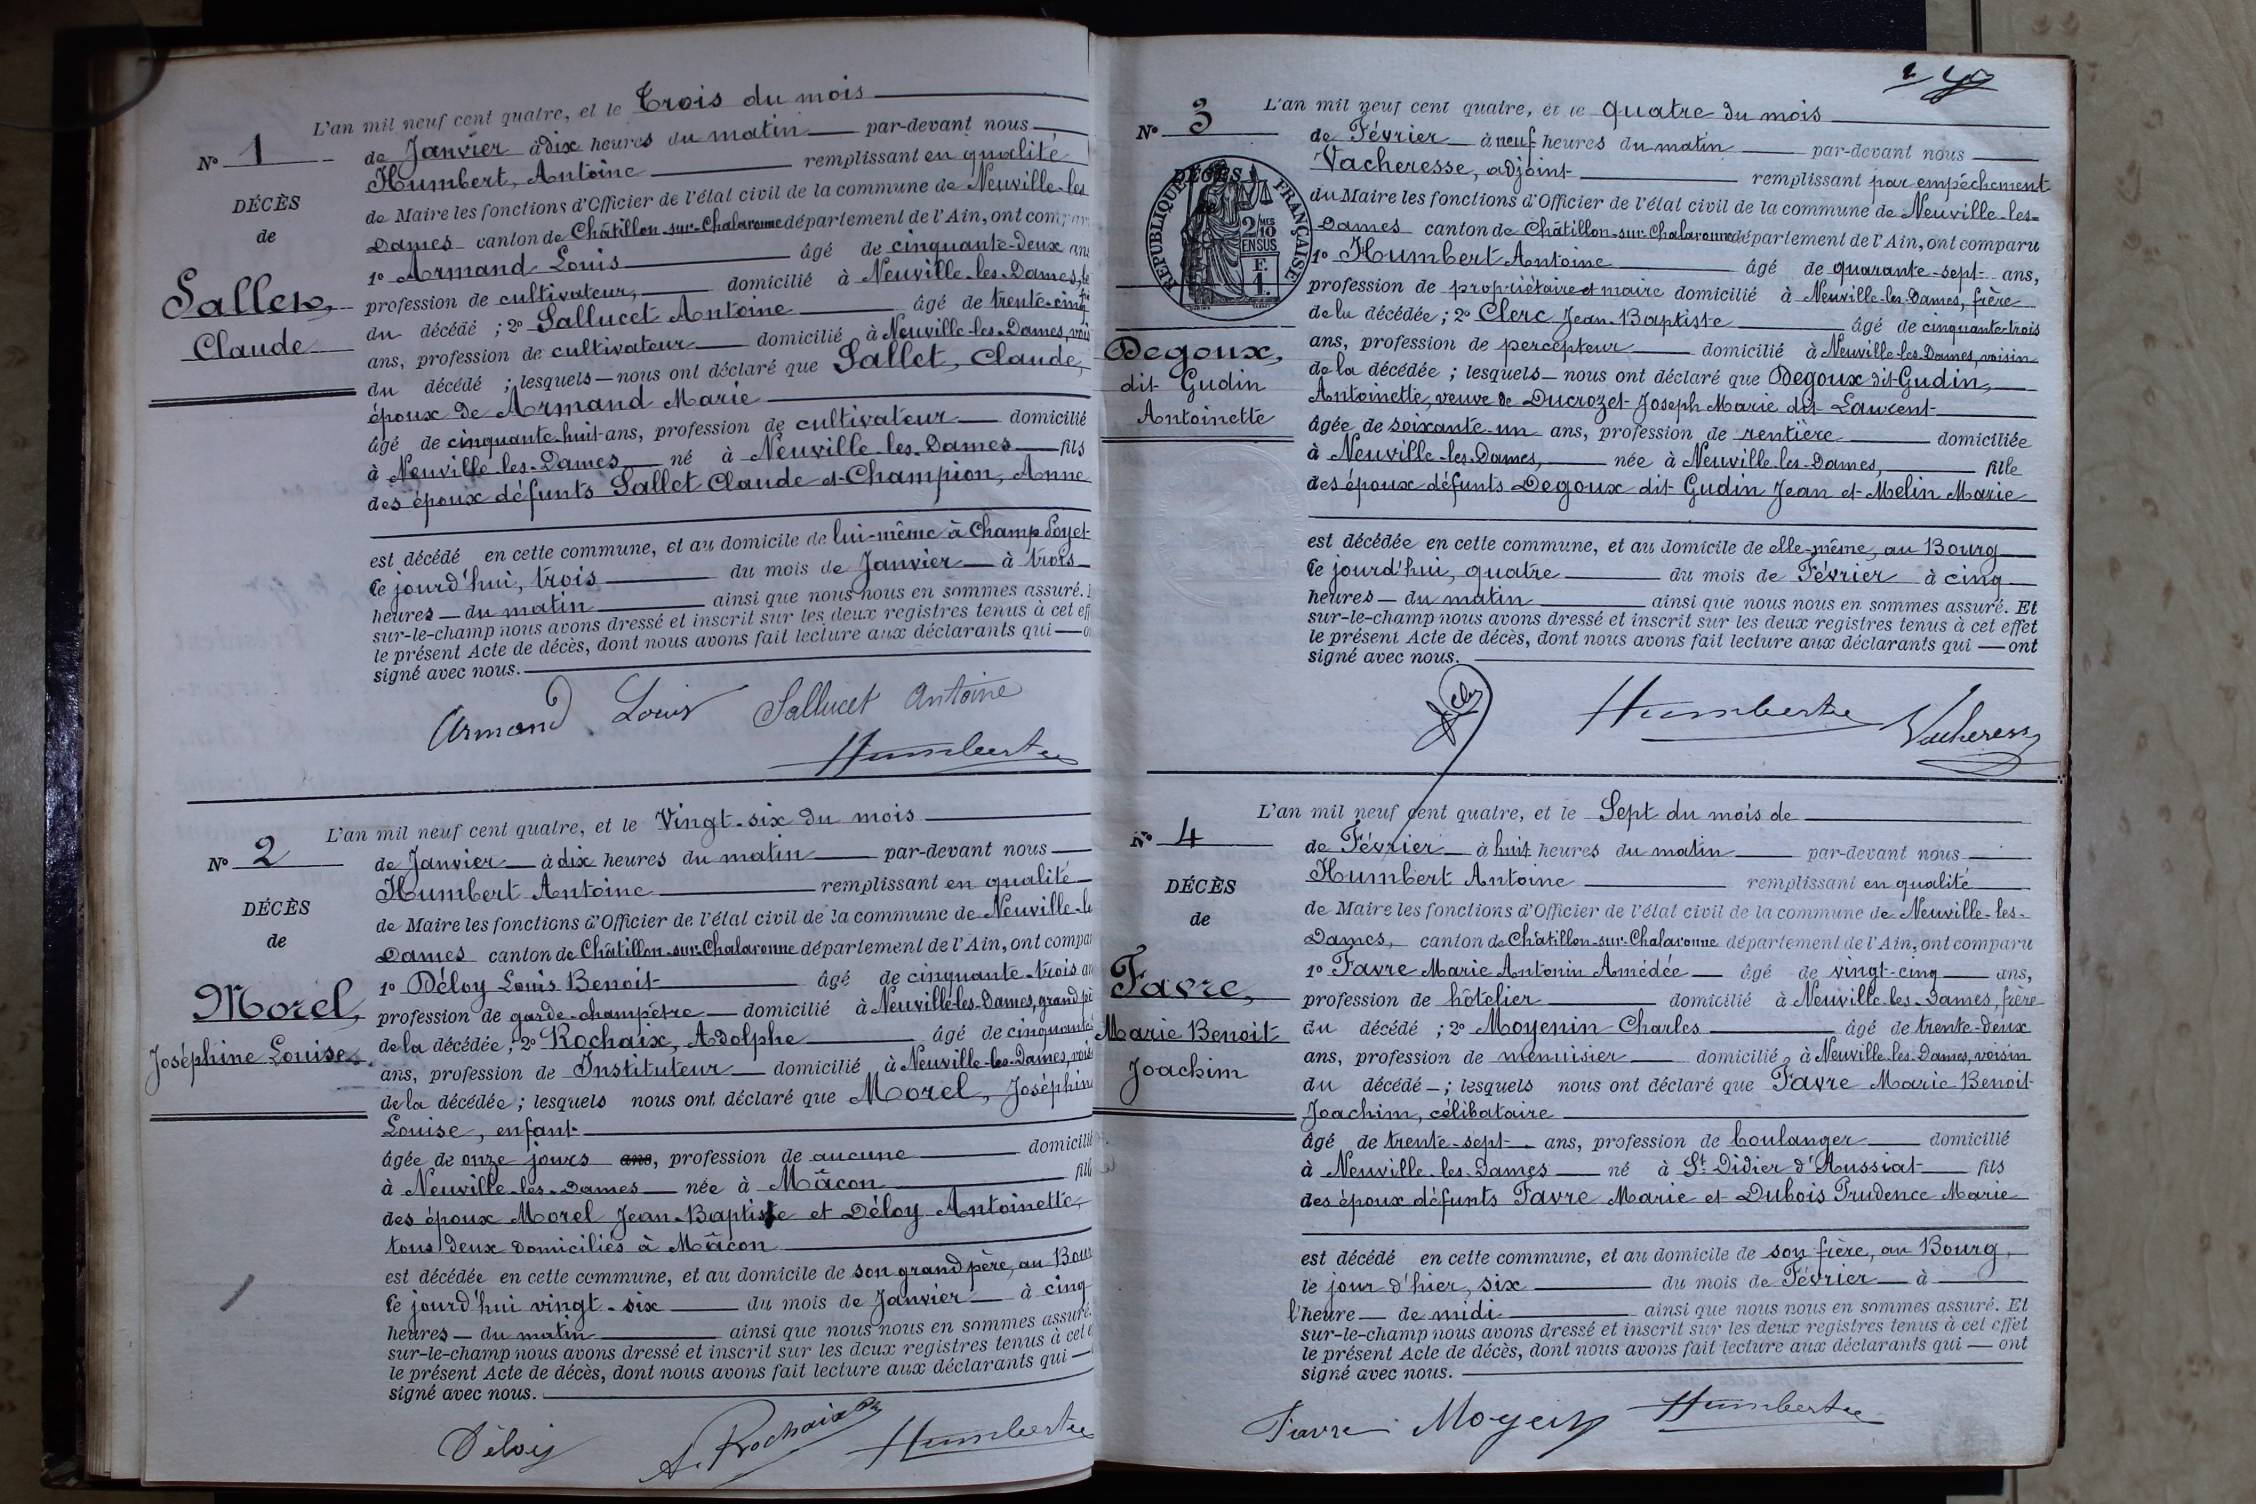 L'an mil neuf cent quatre, et le Trois du mois
N° 1
de Janvier à dix heures du matin par-devant nous
Humbert, Antoine remplissant en qualité
DÉCÈS
de Maire les fonctions d'Officier de l'état civil de la commune de Neuville-les
de
Dames canton de Châtillon-sur-Chalaronne département de l'Ain, ont compar
1° Armand Louis âgé de cinquante-deux ans
Sallet,
profession de cultivateur, domicilié à Neuville-les-Dames,
du décédé ; 2° Sallucet Antoine âgé de trente-cinq
Claude
ans, profession de cultivateur domicilié à Neuville-les-Dames, vois
du décédé ; lesquels nous ont déclaré que Sallet, Claude,
époux de Armand Marie
âgé de cinquante-huit ans, profession de cultivateur domicilié
à Neuville-les-Dames né à Neuville-les-Dames fils
des époux défunts Sallet Claude et Champion, Anne
est décédé en cette commune, et au domicile de lui-même à Champ
Ce jourd'hui, trois du mois de Janvier à trois
heures du matin ainsi que nous nous en sommes assuré.
sur-le-champ nous avons dressé et inscrit sur les deux registres tenus à cet eff
le présent Acte de décès, dont nous avons fait lecture aux déclarants qui
signé avec nous.
Armand Louis Sallucet Antoine
Humbert
L'an mil neuf cent quatre, et le Vingt-six du mois
N° 2
de Janvier à dix heures du matin par-devant nous
Humbert Antoine remplissant en qualité
DÉCÈS
de Maire les fonctions d'Officier de l'état civil de la commune de Neuville-le
de
Dames canton de Châtillon-sur-Chalaronne département de l'Ain, ont compar
1° Déloy Louis Benoit âgé de cinquante-trois an
Morel,
profession de garde-champêtre domicilié à Neuville-les-Dames, grand pè
de la décédée ; 2° Rochaix, Adolphe âgé de cinquante
Joséphine Louise
ans, profession de Instituteur domicilié à Neuville-les-Dames, vois
de la décédée ; lesquels nous ont déclaré que Morel, Joséphin
Louise, enfant
âgée de onze jours ans, profession de aucune domicilié
à Neuville-les-Dames née à Mâcon fill
des époux Morel Jean-Baptiste et Déloy Antoinette,
tous deux domiciliés à Mâcon
est décédée en cette commune, et au domicile de son grand père, au Bour
Ce jourd'hui vingt-six du mois de Janvier à cinq
heures du matin ainsi que nous nous en sommes assuré.
sur-le-champ nous avons dressé et inscrit sur les deux registres tenus à cet e
le présent Acte de décès, dont nous avons fait lecture aux déclarants qui
signé avec nous.
Déloy A. Rochaix Humbert
2
L'an mil neuf cent quatre, et le quatre du mois
N° 3
de Février à neuf heures du matin par-devant nous
Vacheresse, adjoint remplissant par empêchement
DÉCÈS
RÉPUBLIQUE FRANÇAISE
2/10 MES
EN SUS
F.
1.
du Maire les fonctions d'Officier de l'état civil de la commune de Neuville-les-
Dames canton de Châtillon-sur-Chalaronne département de l'Ain, ont comparu
1° Humbert Antoine âgé de quarante-sept ans,
profession de propriétaire et maire domicilié à Neuville-les-Dames, frère
de la décédée ; 2° Clerc Jean-Baptiste âgé de cinquante-trois
Degoux,
ans, profession de percepteur domicilié à Neuville-les-Dames, voisin
dit Gudin
de la décédée ; lesquels nous ont déclaré que Degoux dit Gudin,
Antoinette
Antoinette, veuve de Ducrozet Joseph Marie dit Laurent
âgée de soixante-un ans, profession de rentière domiciliée
à Neuville-les-Dames, née à Neuville-les-Dames, fille
des époux défunts Degoux dit Gudin Jean et Melin Marie
est décédée en cette commune, et au domicile de elle-même, au Bourg
Ce jourd'hui, quatre du mois de Février à cinq
heures du matin ainsi que nous nous en sommes assuré. Et
sur-le-champ nous avons dressé et inscrit sur les deux registres tenus à cet effet
le présent Acte de décès, dont nous avons fait lecture aux déclarants qui ont
signé avec nous.
Humbert Vacheresse
L'an mil neuf cent quatre, et le Sept du mois de
N° 4
de Février à huit heures du matin par-devant nous
Humbert Antoine remplissant en qualité
DÉCÈS
de Maire les fonctions d'Officier de l'état civil de la commune de Neuville-les-
de
Dames, canton de Châtillon-sur-Chalaronne département de l'Ain, ont comparu
1° Favre Marie Antonin Amédée âgé de vingt-cinq ans,
Favre,
profession de hôtelier domicilié à Neuville-les-Dames, frère
Marie Benoit
du décédé ; 2° Moyenin Charles âgé de trente-deux
ans, profession de menuisier domicilié à Neuville-les-Dames, voisin
Joachim
du décédé ; lesquels nous ont déclaré que Favre Marie Benoit
Joachim, célibataire
âgé de trente-sept ans, profession de boulanger domicilié
à Neuville-les-Dames né à St Didier d'Aussiat fils
des époux défunts Favre Marie et Dubois Prudence Marie
est décédé en cette commune, et au domicile de son frère, au Bourg,
le jour d'hier, six du mois de Février à
l'heure de midi ainsi que nous nous en sommes assuré. Et
sur-le-champ nous avons dressé et inscrit sur les deux registres tenus à cet effet
le présent Acte de décès, dont nous avons fait lecture aux déclarants qui ont
signé avec nous.
Favre Humbert